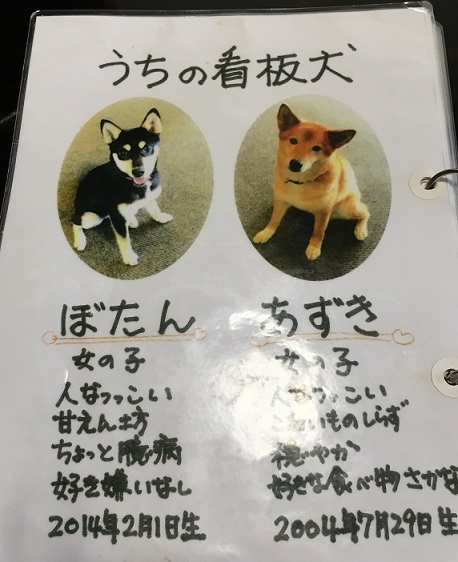 うちの看板犬
ぼたん
女の子
人なつっこい
甘えん坊
ちょっと臆病
好き嫌いなし
2014年2月1日生
あずき
女の子
人なつっこい
こわいものしらず
穏やか
好きな食べ物さかな
2004年7月29日生